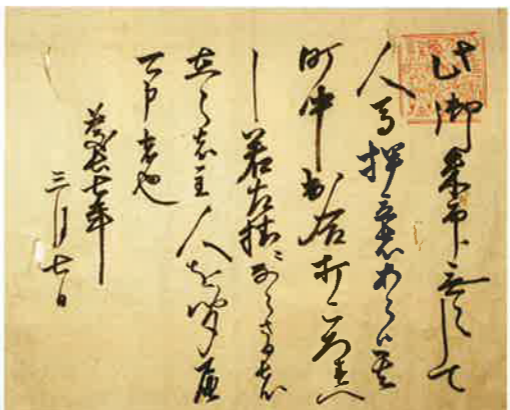 此御朱印なくして
人馬押立者あらハ其
町中出合打ころすへ
し若左様ニならさる者
在之者主人を聞届
可申者也
慶長七年
三月七日